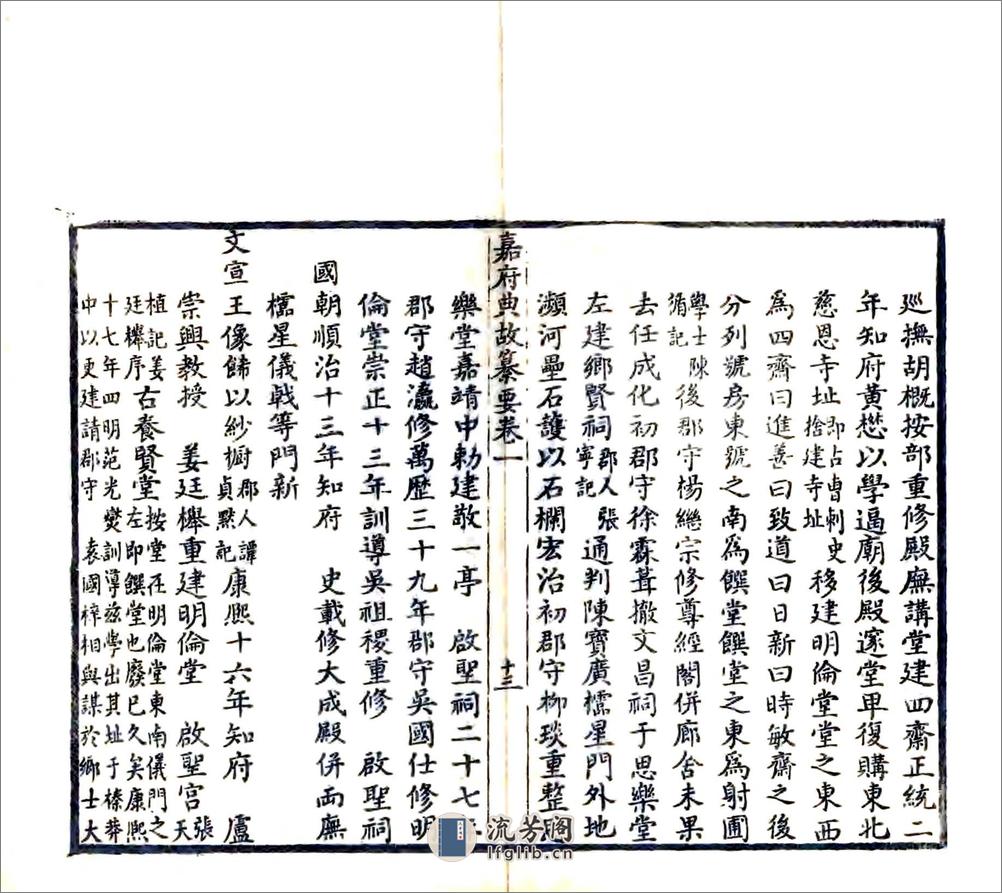 巡撫胡概按部重修殿廡講堂建四齋正統二
年知府黃懋以學逼廟後殿邃堂卑復購東北
慈恩寺址即占曹刺史捨建寺址移建明倫堂堂之東西
為四齋曰進善曰致道曰日新曰時敏齋之後
分列號房東號之南為饌堂饌堂之東為射圃
學士陳循記後郡守楊繼宗修尊經閣併廊舍未果
去任成化初郡守徐霖葺撤文昌祠于思樂堂
左建鄉賢祠郡人張寧記通判陳寶廣櫺星門外地
瀕河壘石護以石欄宏治初郡守柳琰重整思
嘉府典故纂要卷一
十三
樂堂嘉靖中勅建敬一亭 啟聖祠二十七年
郡守趙瀛修萬歷三十九年郡守吳國仕修明
倫堂崇正十三年訓導吳祖稷重修 啟聖祠
國朝順治十三年知府 史載修大成殿併兩廡
櫺星儀戟等門新
文宣王像餙以紗櫥郡人譚貞默記康熙十六年知府 盧
崇興教授 姜廷櫸重建明倫堂 啟聖宮張天
植記姜廷櫸序右養賢堂按堂在明倫堂東南儀門之左即饌堂也廢已久矣康熙
十七年四明范光燮訓導茲學出其址于榛莽
中以更建請郡守 袁國梓相與謀於鄉士大
流芳閣
lfglib.cn